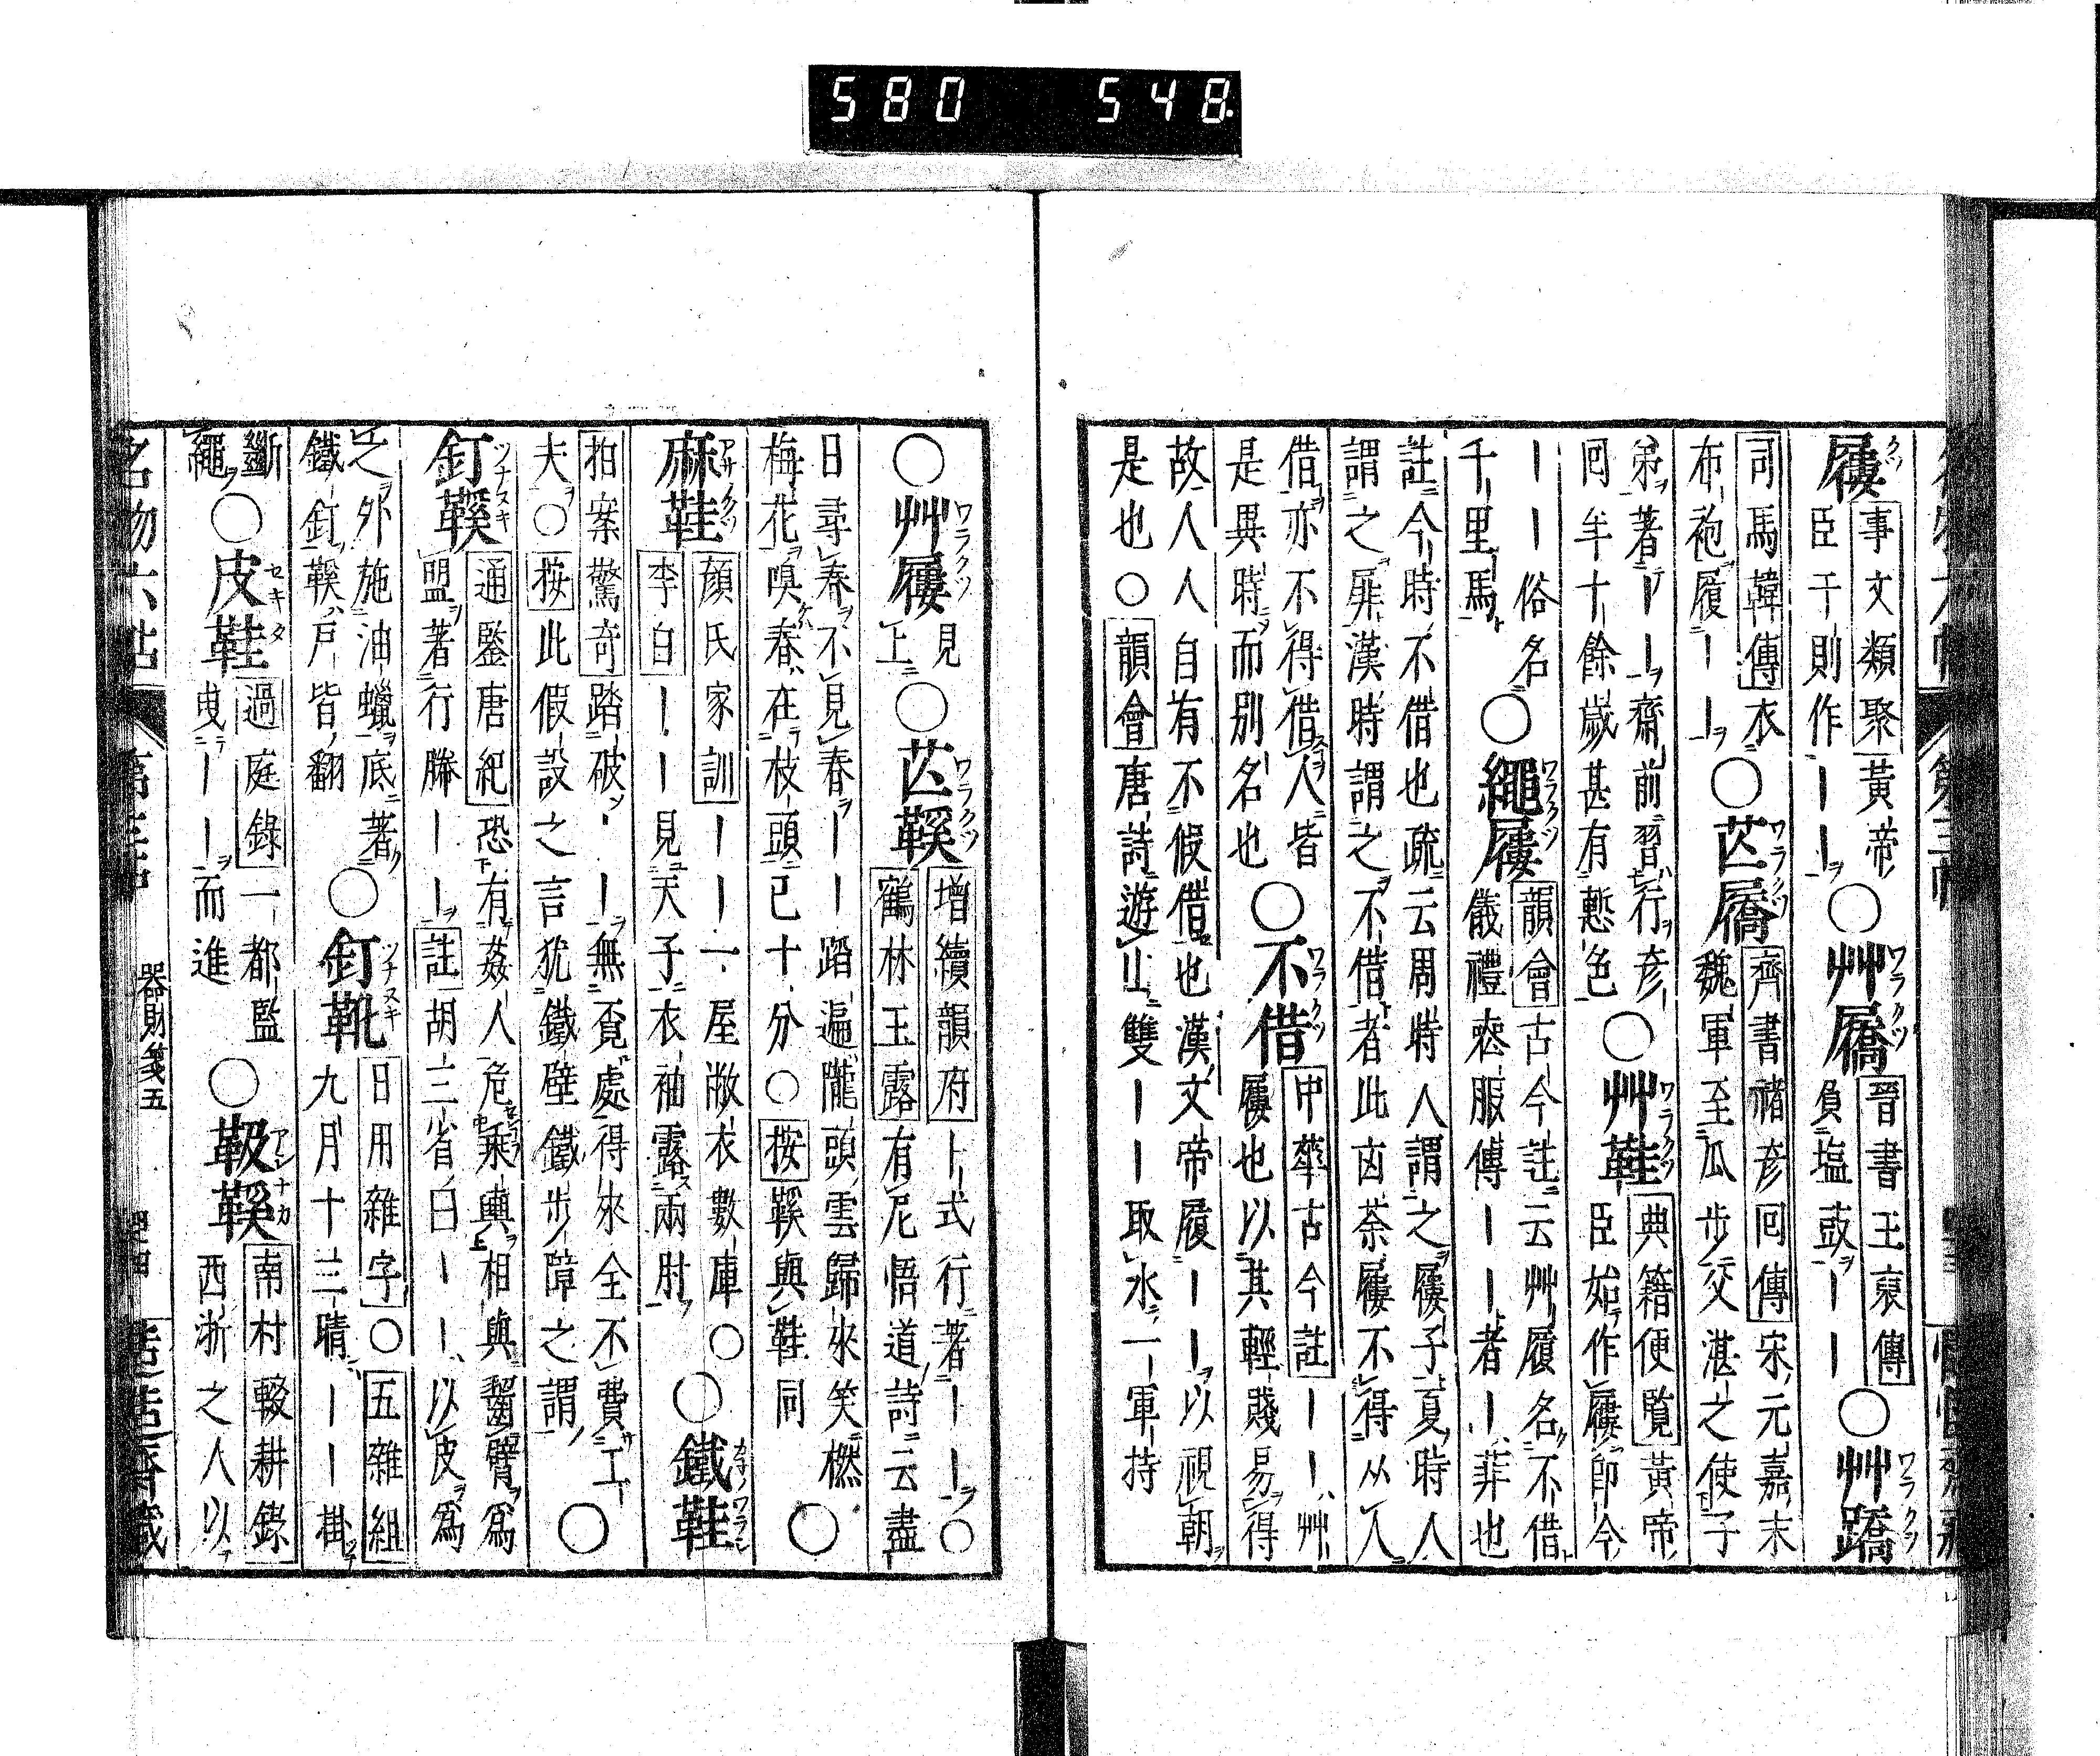 580 548
屨クツ
事文類聚黃帝
臣于則作――
○艸屩ワラクツ
晉書王裒傳
負塩豉――
○艸蹻ワラクツ
司馬韓傳衣
布袍履――
○芒屩ワラクツ
齊書褚彦回傳宋元嘉末
魏軍至瓜步交湛之使子
弟著――齋前習行彦
回年十餘歲甚有慙色
○艸鞋ワラクツ
典籍便覧黃帝
臣始作屨即今
――俗名
千里馬
○繩屨ワラクツ
韻會古今註云艸履名不借
儀禮喪服傳――者―菲也
註今時不借也疏云周時人謂之屨子夏時人
謂之屝漢時謂之不借者此凶荼屨不得从人
借亦不得借人皆
是異時而別名也
○不借ワラクツ
中華古今註――艸
屨也以其輕賤易得
故人人自有不假借也漢文帝履――以視朝
是也○韻會唐詩遊山雙――取水一軍持
○艸屨ワラクツ
見
上
○芒鞵ワラクツ
增續韻府卜式行著――○
鶴林玉露有尼悟道詩云盡
日尋春不見春――踏遍隴頭雲歸來笑撚
梅花嗅春在枝頭已十分○按鞵與鞋同
○
麻鞋アサノクツ
顔氏家訓――一屋敝衣數庫○
李白――見天子衣袖露兩肘
○鐵鞋カネノワラシ
拍案驚奇踏破――無覓處得來全不費工
夫○按此假設之言犹鐵壁鐵步障之謂
○
釘鞵ツナヌキ
通鑒唐紀恐有姦人危乘輿相與齧臂爲
盟著行縢――註胡三省曰――以皮爲
之外施油蠟底著
鐵釘鞵戶皆翻
○釘靴ツナヌキ
日用雜字○五雜組
九月十三晴――掛
斷
繩
○皮鞋セキタ
過庭錄一都監
曳――而進
○靸鞵アシナカ
南村輟耕錄
西浙之人以
名物六帖
第三帖
器財箋五